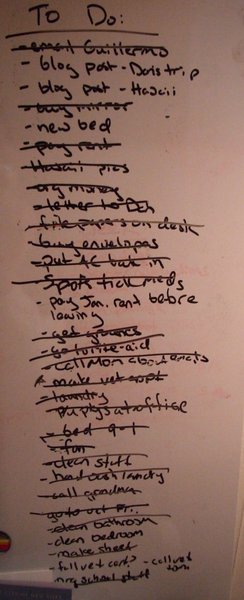 To Do:
- email Guillermo
- blog post - Doris trip
- blog post - Hawaii
- buy mirror
- new bed
- pay rent
Hawaii pics
org money
- letter to Deb
- file papers on desk
- buy envelopes
- put AC back in
Spots tick meds
- pay Jan. rent before
leaving
- get groceries
- go to rite-aid
- call Mom about
- make vet appt
- laundry
- bed
- fun
- clean stuff
- laundry
- call grandma
go to
- clean bathroom
- clean bedroom
- make sheet
- full vet - call vet
school stuff